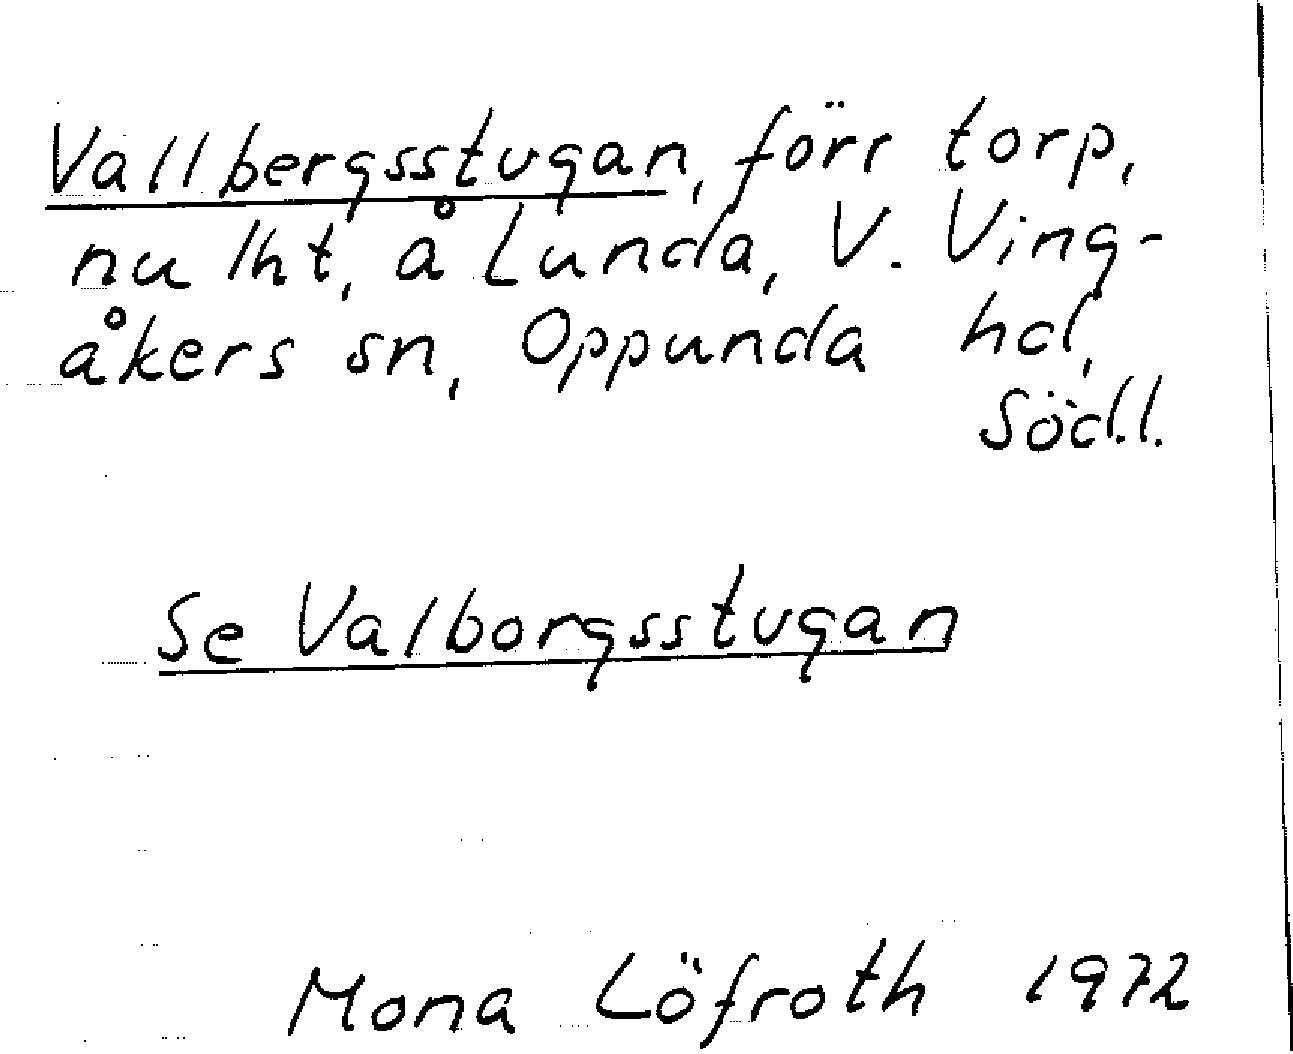 Vallbergsstugan, förr torp,
nu lht, å Lunda, V. Ving-
åkers sn, Oppunda hd,
Söd.l.
Se Valborgsstugan
Mona Löfroth 1972